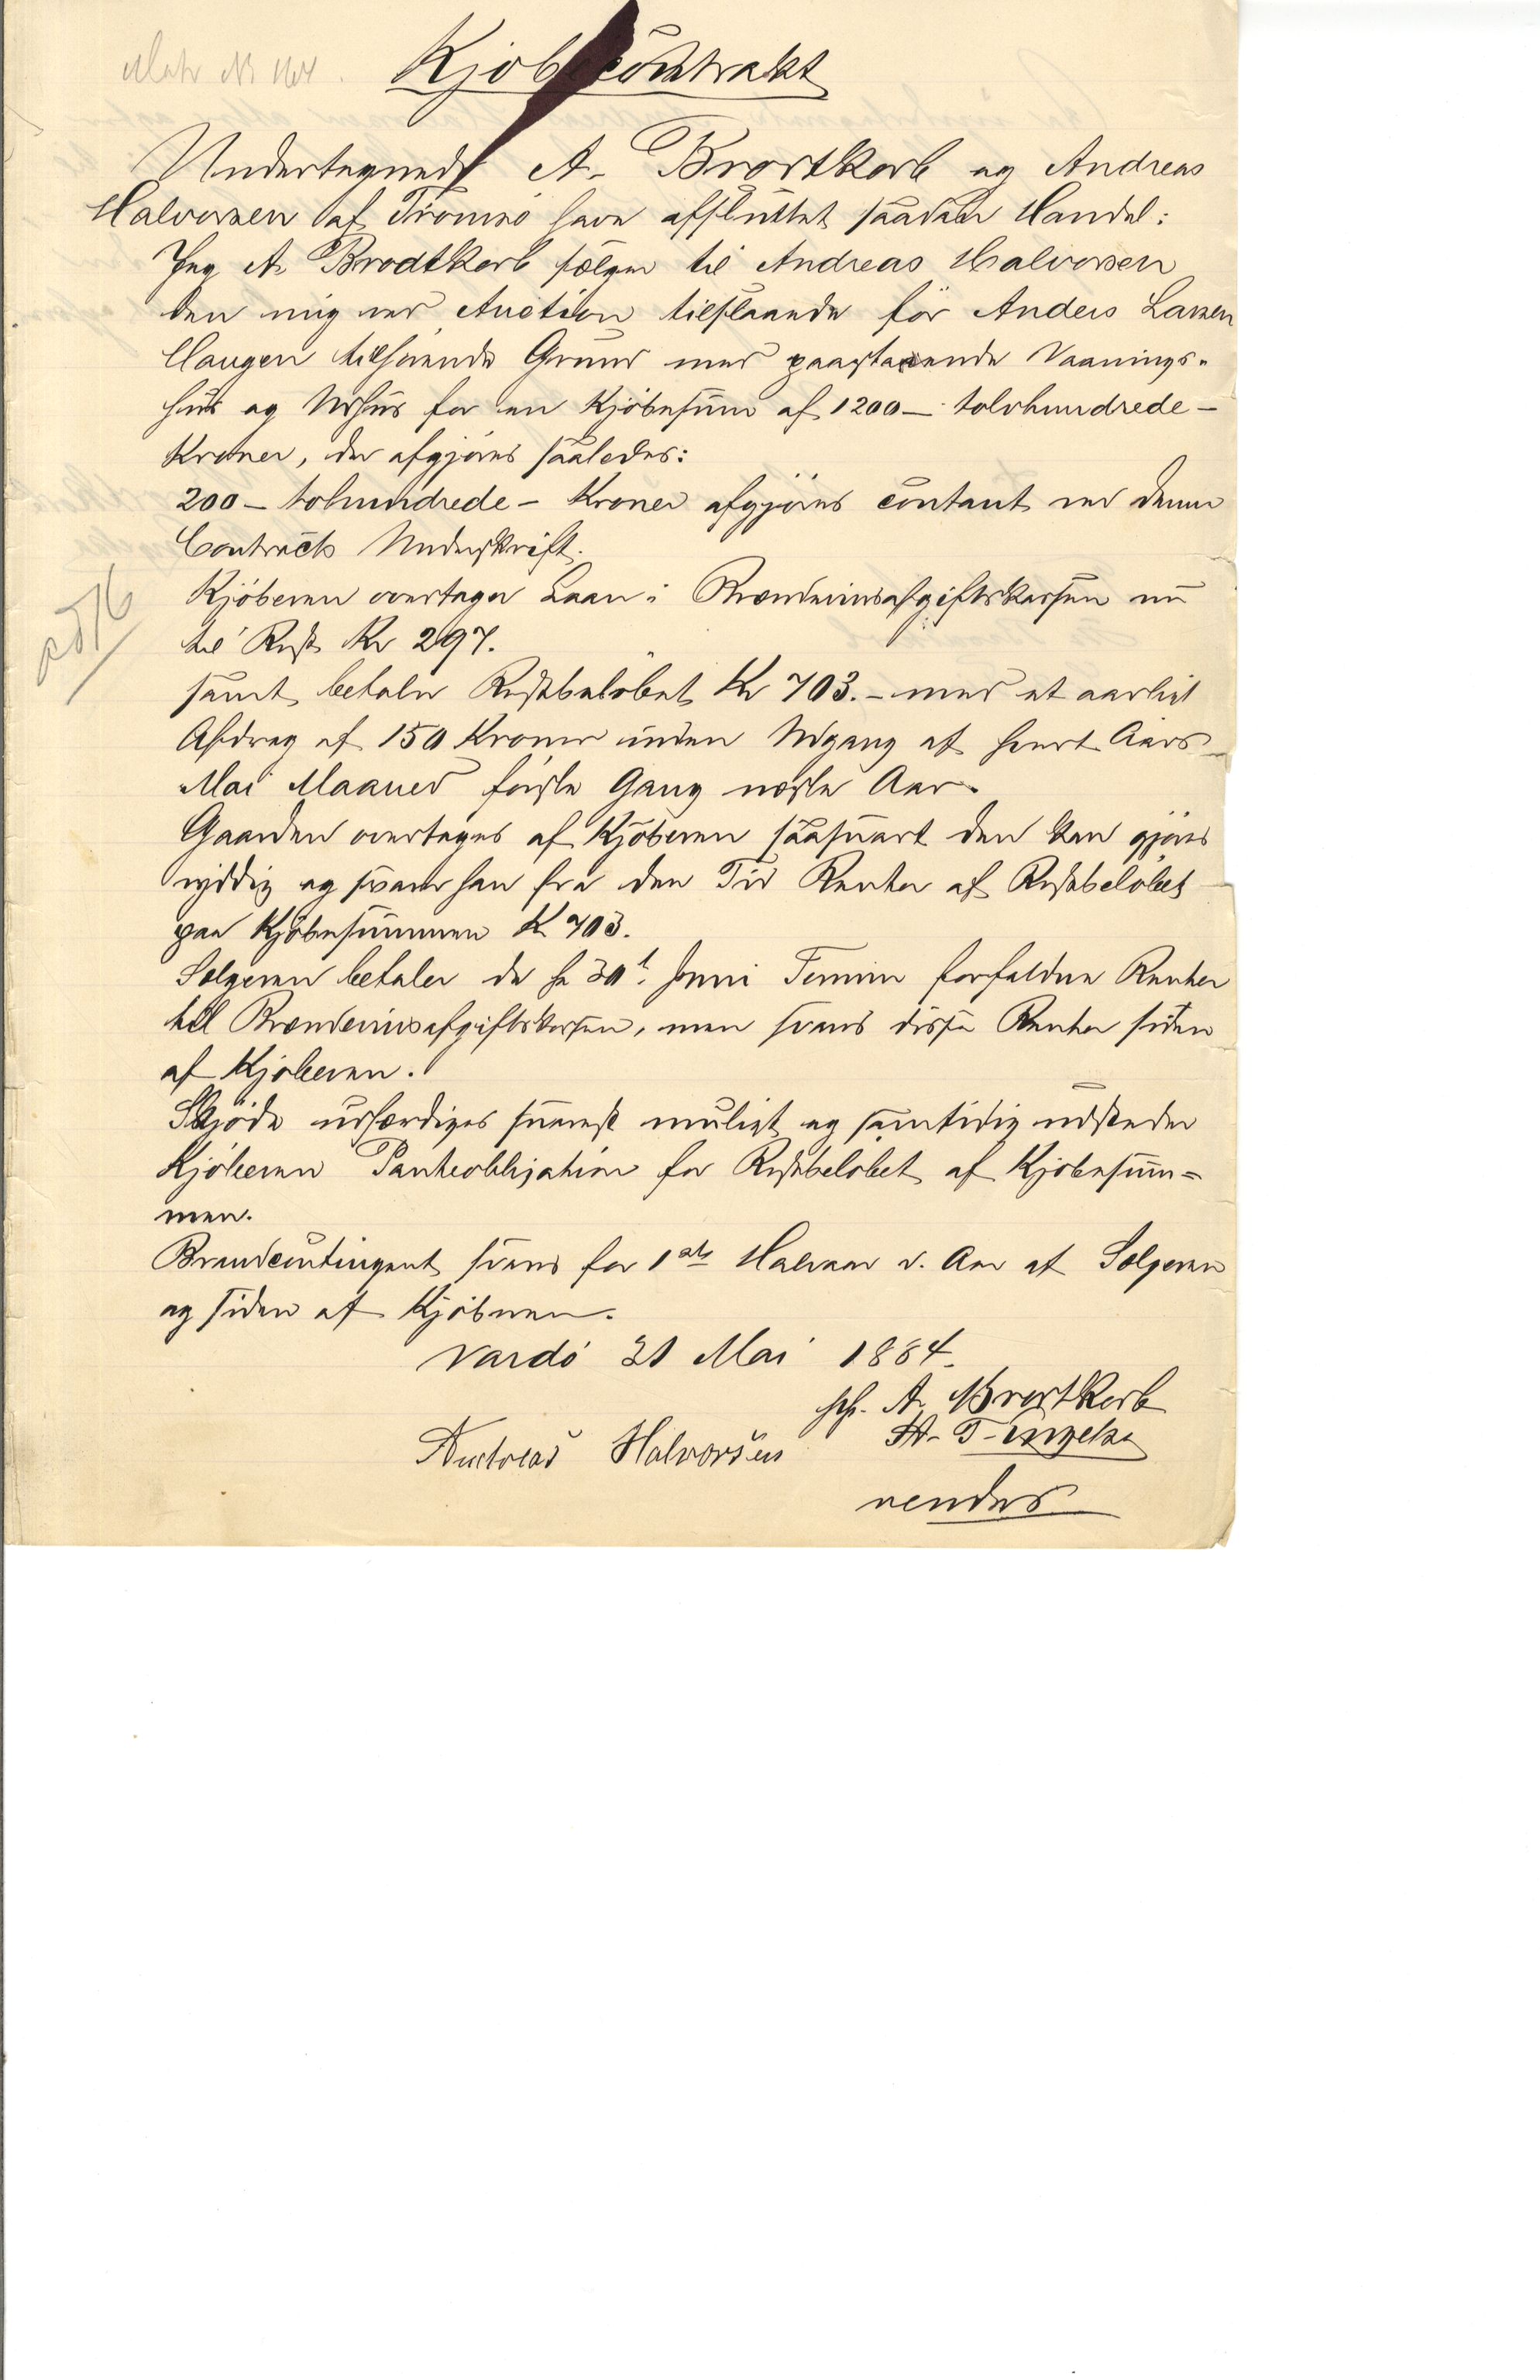 Matr No 164.
Kjöbecontrakt
Undertegnede A. Brodtkorb og Andreas
Halvorsen af Tromsö have afsluttet saadan Handel:
Jeg A. Brodtkorb sælger til Andreas Halvorsen
den mig ved Auction tilslaaede før Anders Larsen
Haugen tilhörende Grund med paastaaende Vaanings-
hus og Udhus for en Kjöbesum af 1200 – tolvhundrede –
Kroner, der afgjöres saaledes:
200 – tohundrede – Kroner afgjöres contant ved denne
Contracts Underskrift.
Kjöberen overtager Laan i Brændevinsafgiftskassen nu
til Rest Kr 297.
samt betaler Restbelöbet Kr 703. – med et aarligt
Afdrag af 150 Kroner inden Udgang af hvert Aars
Mai Maaned förste Gang næste Aar.
Gaarden overtages af Kjöberen saasnart den kan gjöres
ryddig og svarer han fra den Tid Renter af Restbelöbet
paa Kjöbesummen K 703.
Sælgeren betaler de pr 30t Juni Termin forfaldne Renter
til Brændevinsafgiftskassen, men svares disse Renter siden
af Kjöberen.
Skjöde udfærdiges snarest muligt og samtidig udsteder
Kjöberen Panteobligation for Restbelöbet af Kjöbesum=
men.
Brandcontingent svares for 1ste Halvaar d. Aar af Sælgeren
og siden af Kjöberen.
Vardö 31 Mai 1884.
A. Brodtkorb
Andreas Halvorsen
vendes